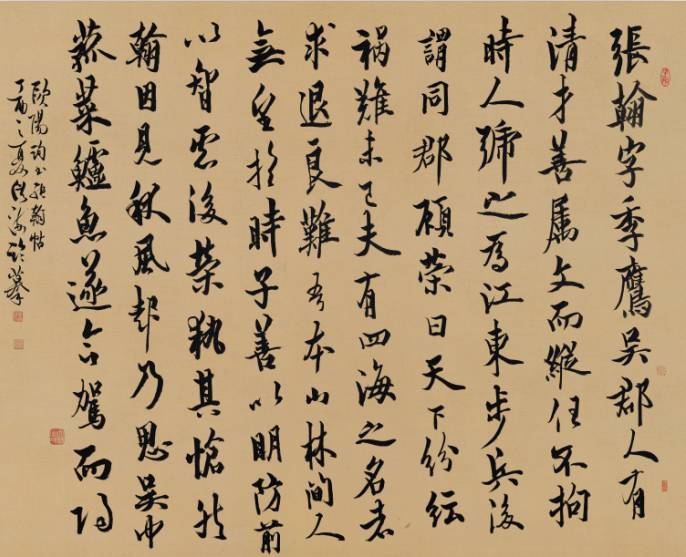 張翰字季鷹吳郡人有
清才善属文而縱任不拘
時人號之為江東步兵後
謂同郡顧榮曰天下紛紜
禍難未已夫有四海之名者
求退良難吾本山林間人
無望於時子善以明防前
以智慮後榮執其愴然
翰因見秋風起乃思吳中
菰菜鱸魚遂命駕而歸
歐陽詢書張翰帖
丁酉之夏 臨摹